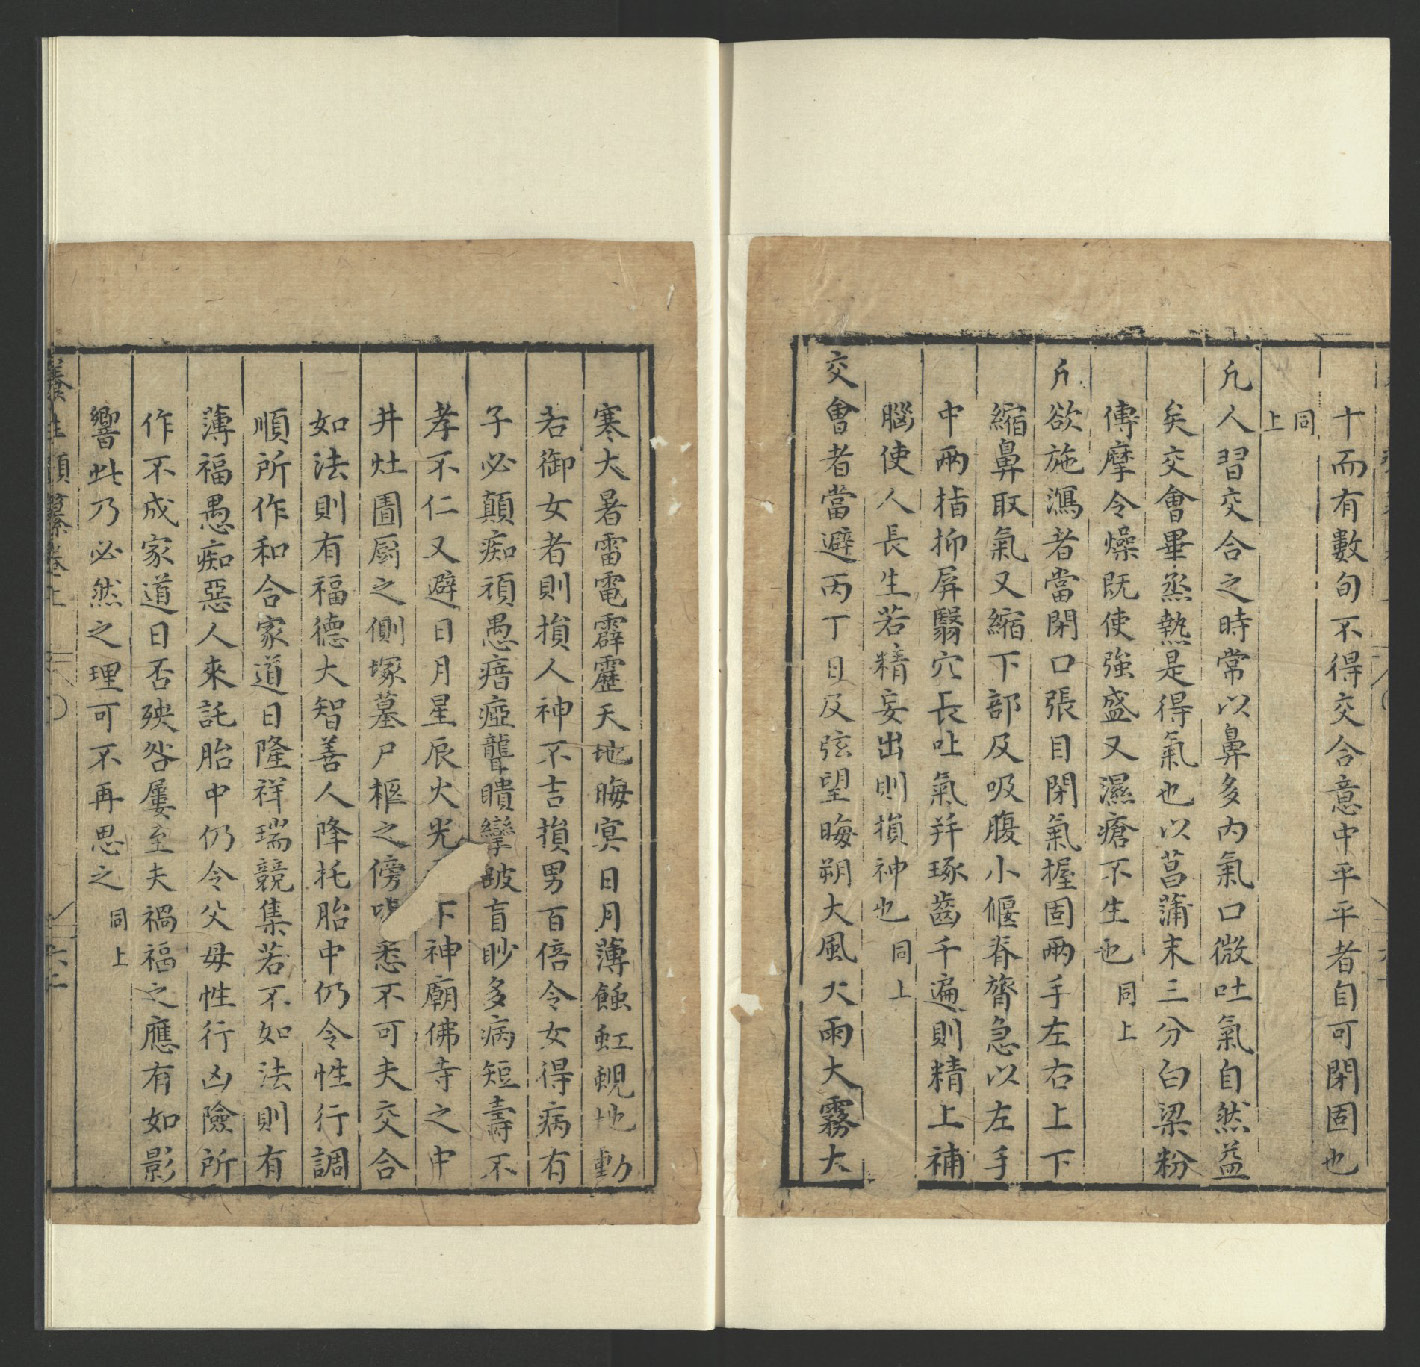 十而有數旬不得交合意中平平者自可閉固也
同上
凡人習交合之時常以鼻多內氣口微吐氣自然益
矣交會畢烝熱是得氣也以菖蒲末三分白梁粉
傅摩令燥既使強盛又濕瘡不生也同上
凡欲施瀉者當閉口張目閉氣握固兩手左右上下
縮鼻取氣又縮下部及吸腹小偃脊膂急以左手
中兩指抑屏翳穴長吐氣并琢齒千遍則精上補
腦使人長生若精妄出則損神也同上
交會者當避丙丁日及弦望晦朔大風大雨大霧大
寒大暑雷電霹靂天地晦冥日月薄蝕虹蜺地動
若御女者則損人神不吉損男百倍令女得病有
子必顛痴頑愚瘖瘂聾聵攣跛盲眇多病短壽不
孝不仁又避日月星辰火光下神廟佛寺之中
井灶圊廁之側塚墓尸柩之傍悉不可夫交合
如法則有福德大智善人降托胎中仍令性行調
順所作和合家道日隆祥瑞競集若不如法則有
薄福愚痴惡人來託胎中仍令父母性行凶險所
作不成家道日否殃咎屢至夫禍福之應有如影
響此乃必然之理可不再思之同上
養生類纂卷上